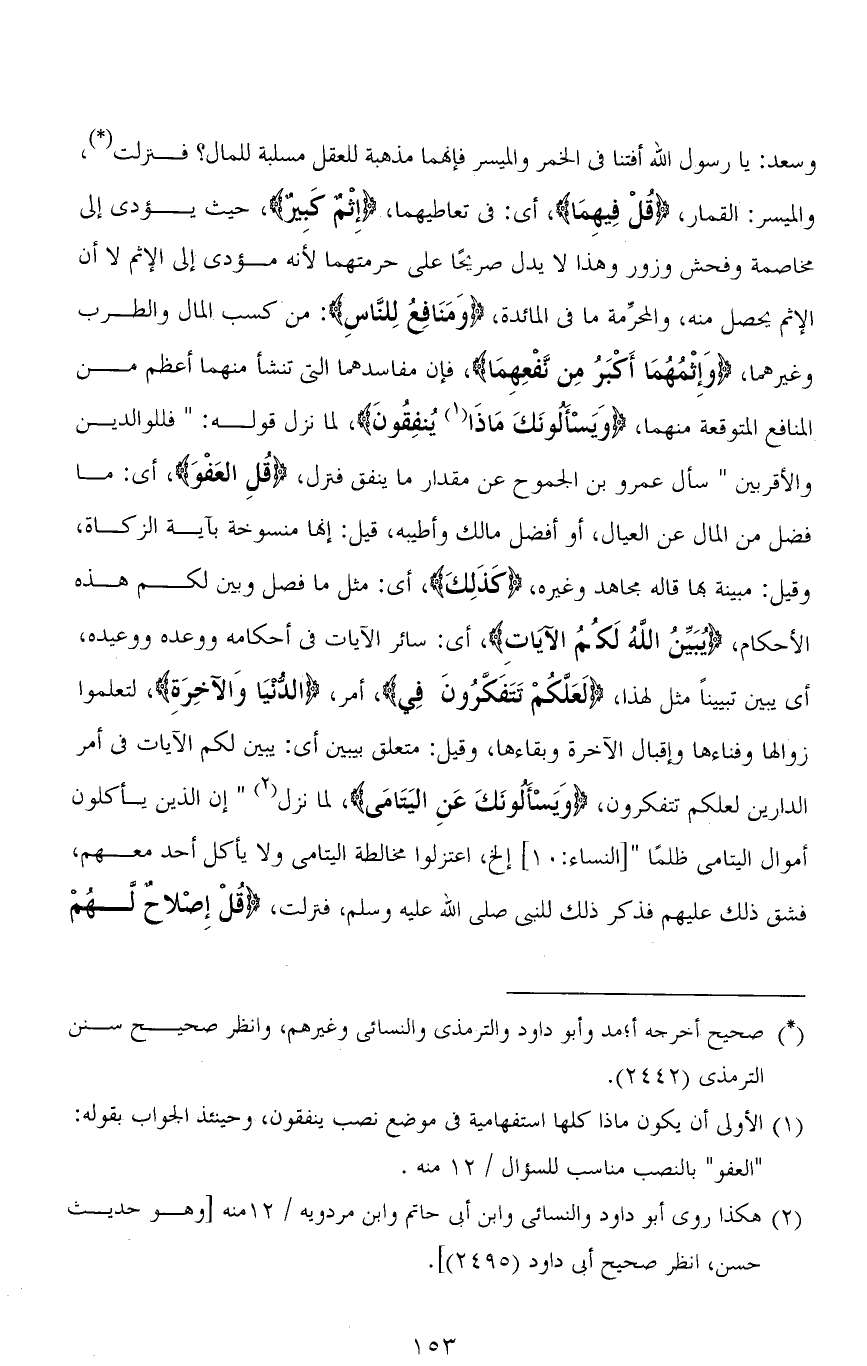 وسعد: يا رسول الله أفتنا فى الخمر والميسر فإنهما مذهبة للعقل مسلبة للمال؟ فنزلت(*)،
والميسر: القمار، ﴿قُلْ فِيهِمَا﴾، أى: فى تعاطيهما، ﴿إِثْمٌ كَبِيرٌ﴾، حيث يؤدى إلى
مخاصمة وفحش وزور وهذا لا يدل صريحًا على حرمتهما لأنه مؤدى إلى الإثم لا أن
الإثم يحصل منه، والمحرِّمة ما فى المائدة، ﴿وَمَنَافِعُ لِلنَّاسِ﴾: من كسب المال والطرب
وغيرهما، ﴿وَإِثْمُهُمَا أَكْبَرُ مِن نَّفْعِهِمَا﴾، فإن مفاسدهما التى تنشأ منهما أعظم من
المنافع المتوقعة منهما، ﴿وَيَسْأَلُونَكَ مَاذَا(١) يُنفِقُونَ﴾، لما نزل قوله: " فللوالدين
والأقربين " سأل عمرو بن الجموح عن مقدار ما ينفق فنزل، ﴿قُلِ العَفْوَ﴾، أى: ما
فضل من المال عن العيال، أو أفضل مالك وأطيبه، قيل: إنها منسوخة بآية الزكاة،
وقيل: مبينة بها قاله مجاهد وغيره، ﴿كَذَلِكَ﴾، أى: مثل ما فصل وبين لكم هذه
الأحكام، ﴿يُبَيِّنُ اللَّهُ لَكُمُ الآيَاتِ﴾، أى: سائر الآيات فى أحكامه ووعده ووعيده،
أى يبين تبييناً مثل لهذا، ﴿لَعَلَّكُمْ تَتَفَكَّرُونَ فِي﴾، أمر، ﴿الدُّنْيَا وَالآخِرَةِ﴾، لتعلموا
زوالها وفناءها وإقبال الآخرة وبقاءها، وقيل: متعلق بيبين أى: يبين لكم الآيات فى أمر
الدارين لعلكم تتفكرون، ﴿وَيَسْأَلُونَكَ عَنِ اليَتَامَى﴾، لما نزل(٢) " إن الذين يأكلون
أموال اليتامى ظلمًا "[النساء:١٠] إلخ، اعتزلوا مخالطة اليتامى ولا يأكل أحد معهم،
فشق ذلك عليهم فذكر ذلك للنبى صلى الله عليه وسلم، فنزلت، ﴿قُلْ إِصْلاحٌ لَّهُمْ
(*) صحيح أخرجه أحمد وأبو داود والترمذى والنسائى وغيرهم، وانظر صحيح سنن
الترمذى (٢٤٤٢).
(١) الأولى أن يكون ماذا كلها استفهامية فى موضع نصب ينفقون، وحينئذ الجواب بقوله:
"العفو" بالنصب مناسب للسؤال / ١٢ منه .
(٢) هكذا روى أبو داود والنسائى وابن أبى حاتم وابن مردويه / ١٢منه [وهو حديث
حسن، انظر صحيح أبى داود (٢٤٩٥)].
١٥٣